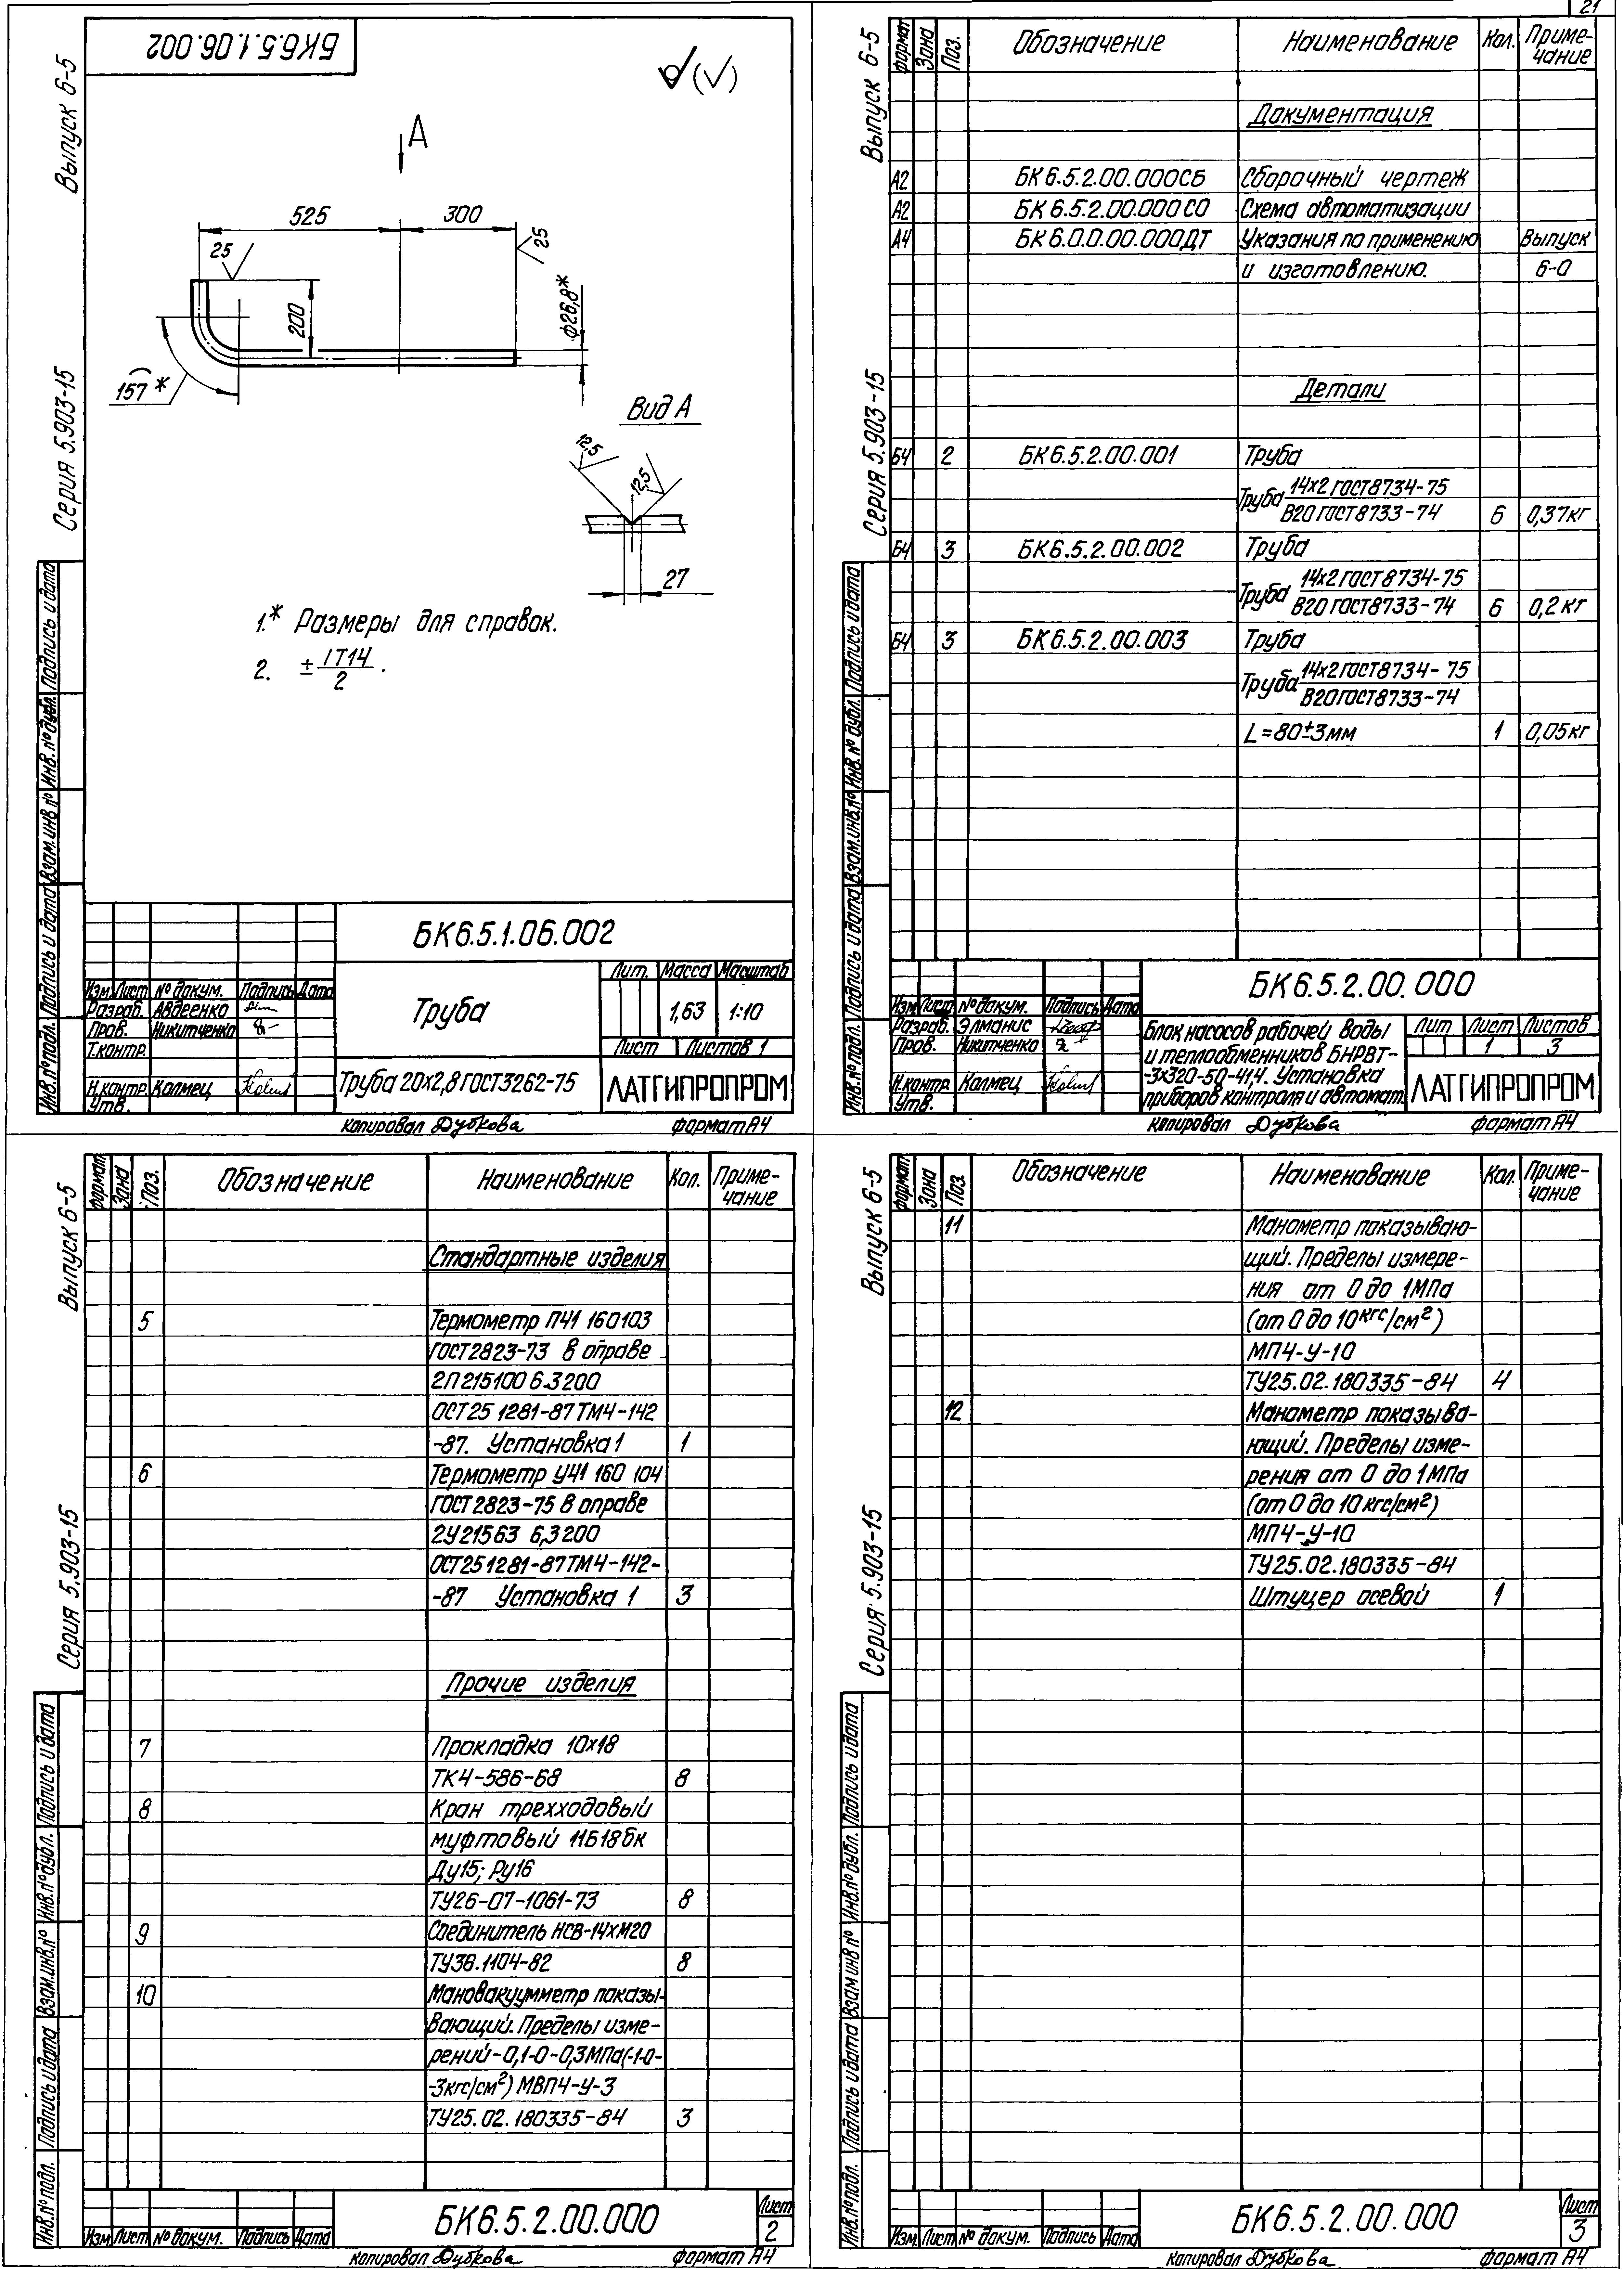 21
БК6.5.1.06.002
Выпуск 6-5
Серия 5.903-15
А
525
300
25
25
200
ф26,8*
157*
Вид А
12,5
12,5
27
1.* Размеры для справок.
2. ± IT14/2.
Инв.№подл. Подпись и дата Взам.инв.№ Инв.№дубл. Подпись и дата
БК6.5.1.06.002
Изм Лист № докум. Подпись Дата
Разраб. Авдеенко
Пров. Никитченко
Т.контр.
Н.контр. Калмец
Утв.
Труба
Лит. Масса Масштаб
1,63 1:10
Лист Листов 1
Труба 20х2,8 ГОСТ3262-75
ЛАТГИПРОПРОМ
копировал Дубкова формат А4
Выпуск 6-5
Серия 5.903-15
формат Зона Поз. Обозначение Наименование Кол. Приме-
чание
Документация
А2 БК6.5.2.00.000СБ Сборочный чертеж
А2 БК6.5.2.00.000СО Схема автоматизации
А4 БК6.0.0.00.000ДТ Указания по применению Выпуск
и изготовлению. 6-0
Детали
Б4 2 БК6.5.2.00.001 Труба
Труба 14х2ГОСТ8734-75
В20ГОСТ8733-74 6 0,37кг
Б4 3 БК6.5.2.00.002 Труба
Труба 14х2ГОСТ8734-75
В20ГОСТ8733-74 6 0,2кг
Б4 3 БК6.5.2.00.003 Труба
Труба 14х2ГОСТ8734-75
В20ГОСТ8733-74
L=80±3мм 1 0,05кг
Инв.№подл. Подпись и дата Взам.инв.№ Инв.№дубл. Подпись и дата
БК6.5.2.00.000
Изм Лист № докум. Подпись Дата
Разраб. Элманис
Пров. Никитченко
Н.контр. Калмец
Утв.
Блок насосов рабочей воды
и теплообменников БНРВТ-
-3х320-50-41,4. Установка
приборов контроля и автомат.
Лит Лист Листов
1 3
ЛАТГИПРОПРОМ
копировал Дубкова формат А4
Выпуск 6-5
Серия 5.903-15
формат Зона Поз. Обозначение Наименование Кол. Приме-
чание
Стандартные изделия
5 Термометр П41 160103
ГОСТ2823-73 в оправе
2П215100 6.3200
ОСТ25 1281-87ТМ4-142
-87. Установка 1 1
6 Термометр У41 160 104
ГОСТ2823-75 в оправе
2У21563 6,3200
ОСТ251281-87ТМ4-142-
-87 Установка 1 3
Прочие изделия
7 Прокладка 10х18
ТК4-586-68 8
8 Кран трехходовый
муфтовый 11Б18бк
Ду15; Ру16
ТУ26-07-1061-73 8
9 Соединитель НСВ-14хМ20
ТУ36.1104-82 8
10 Мановакуумметр показы-
вающий. Пределы изме-
рений-0,1-0-0,3МПа(-1-0-
-3кгс/см²) МВП4-У-3
ТУ25.02.180335-84 3
Инв.№подл. Подпись и дата Взам.инв.№ Инв.№дубл. Подпись и дата
Изм Лист № докум. Подпись Дата
БК6.5.2.00.000
Лист
2
копировал Дубкова формат А4
Выпуск 6-5
Серия 5.903-15
формат Зона Поз. Обозначение Наименование Кол. Приме-
чание
11 Манометр показываю-
щий. Пределы измере-
ния от 0 до 1МПа
(от 0 до 10кгс/см²)
МП4-У-10
ТУ25.02.180335-84 4
12 Манометр показыва-
ющий. Пределы изме-
рения от 0 до 1МПа
(от 0 до 10кгс/см²)
МП4-У-10
ТУ25.02.180335-84
Штуцер осевой 1
Инв.№подл. Подпись и дата Взам инв № Инв.№дубл. Подпись и дата
Изм. Лист № докум. Подпись Дата
БК6.5.2.00.000
Лист
3
копировал Дубкова формат А4